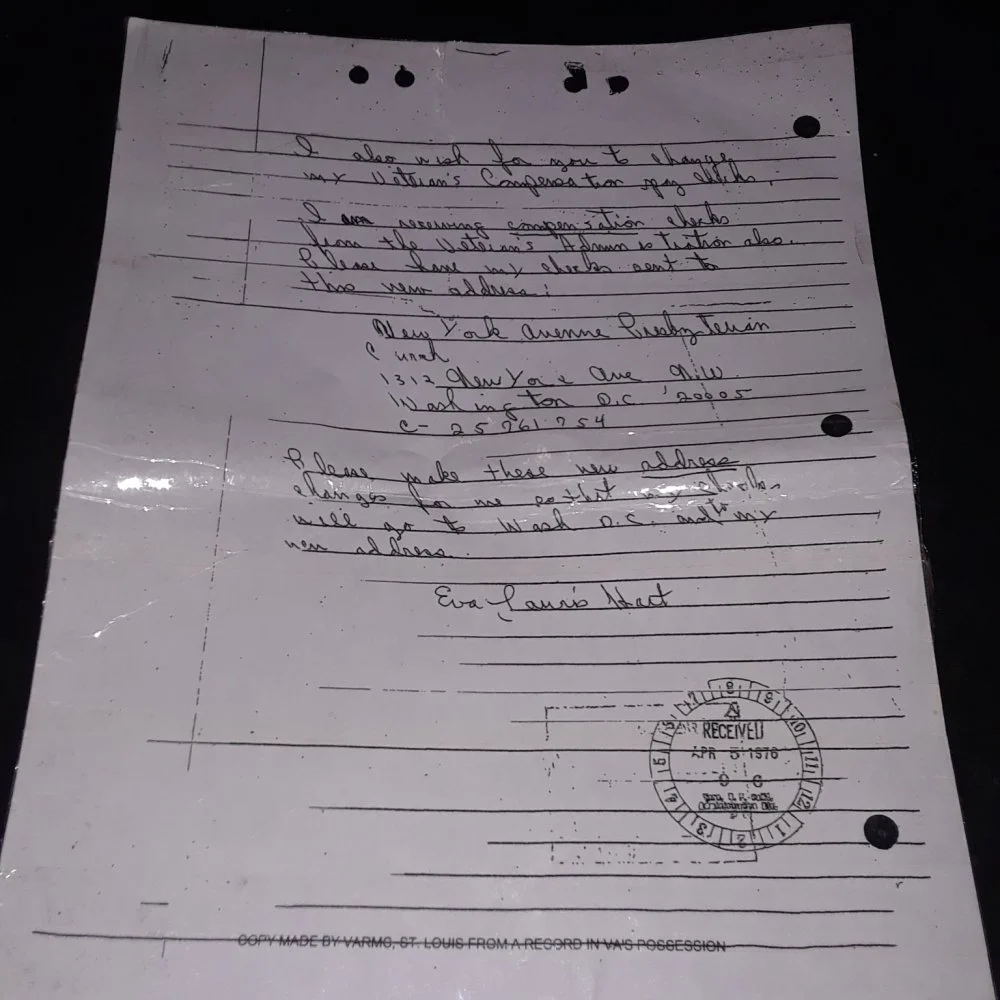 I also wish for you to change
my Veteran's Compensation pay checks.
I am receiving compensation checks
from the Veteran's Administration also.
Please have my checks sent to
this new address:
New York Avenue Presbyterian
C urch
1312 New York Ave N.W.
Washington D.C. 20005
C- 25 761 754
Please make these new address
changes for me so that my checks
will go to Wash D.C. and to my
new address.
Eva Hart
RECEIVED
APR 5 1976
COPY MADE BY VARMC, ST. LOUIS FROM A RECORD IN VA'S POSSESSION